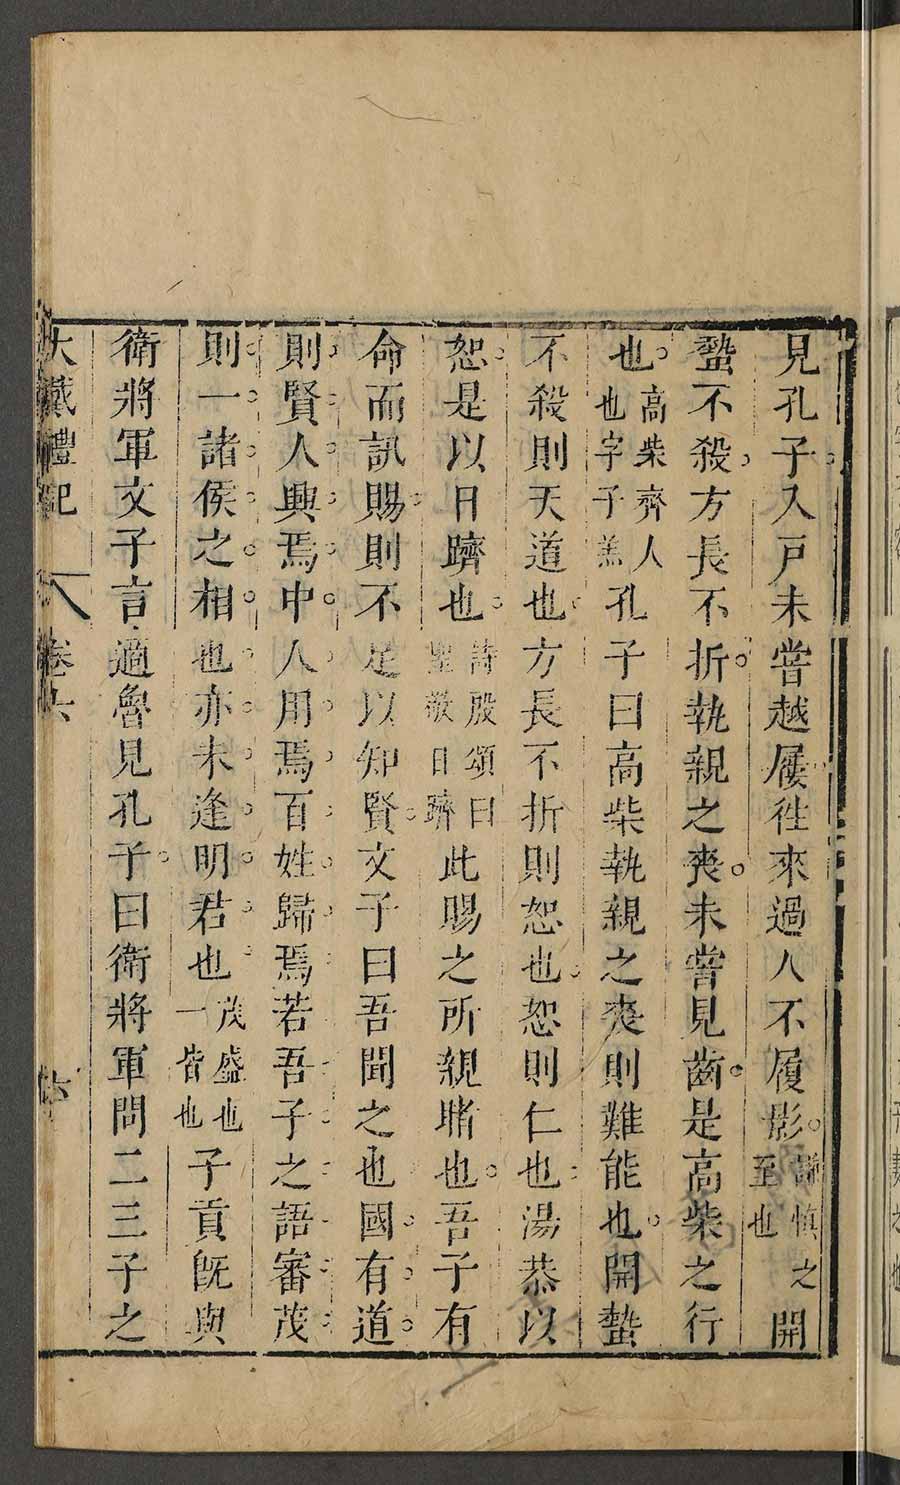 見孔子入戸未嘗越屨徃來過人不履影謹慎之至也開
蟄不殺方長不折執親之喪未嘗見齒是高柴之行
也高柴齊人也字子羔孔子曰高柴執親之喪則難能也開蟄
不殺則天道也方長不折則恕也恕則仁也湯恭以
恕是以日躋也詩殷頌曰聖敬日躋此賜之所親睹也吾子有
命而訊賜則不足以知賢文子曰吾聞之也國有道
則賢人興焉中人用焉百姓歸焉若吾子之語審茂
則一諸侯之相也亦未逢明君也茂盛也一皆也子貢旣與
衛將軍文子言適魯見孔子曰衛將軍問二三子之
大戴禮記 卷六 六